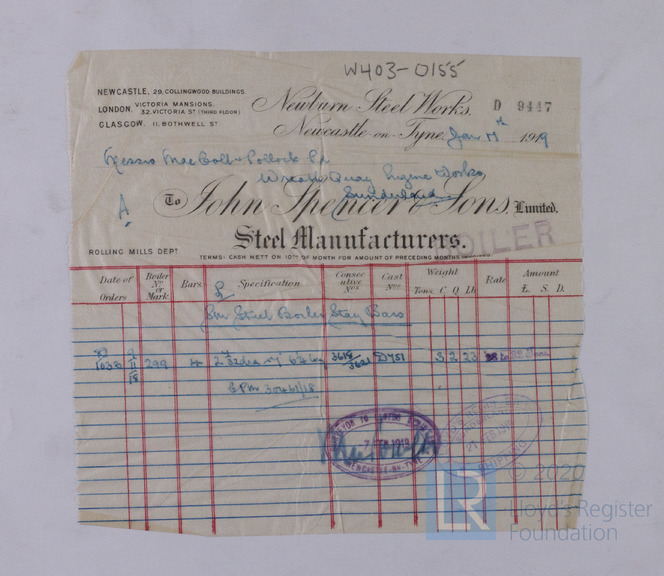 W403-0155
NEWCASTLE, 29, COLLINGWOOD BUILDINGS.
LONDON, VICTORIA MANSIONS, 32, VICTORIA ST (THIRD FLOOR)
GLASGOW, 11, BOTHWELL ST
Newburn Steel Works,
D 9447
Newcastle-on-Tyne, Jan 17th 1919
Messrs MacColl & Pollock Ld
Wreath Quay Engine Works
Sunderland
A
To John Spencer & Sons, Limited,
Steel Manufacturers.
BOILER
ROLLING MILLS DEPT
TERMS: CASH NETT ON 10TH OF MONTH FOR AMOUNT OF PRECEDING MONTHS
Date of Orders
Boiler No or Mark
Bars
Specification
Consecutive Nos
Cast Nos
Weight
Tons C Q Lb
Rate
Amount
£. S. D.
Steel Boiler Stay Bars
1033
9/11/18
299
4
3618/3621
D751
3 2 23
7 FEB 1919
NEWCASTLE-ON-TYNE
SHIPPING
LR
© 2020
Lloyd's Register
Foundation